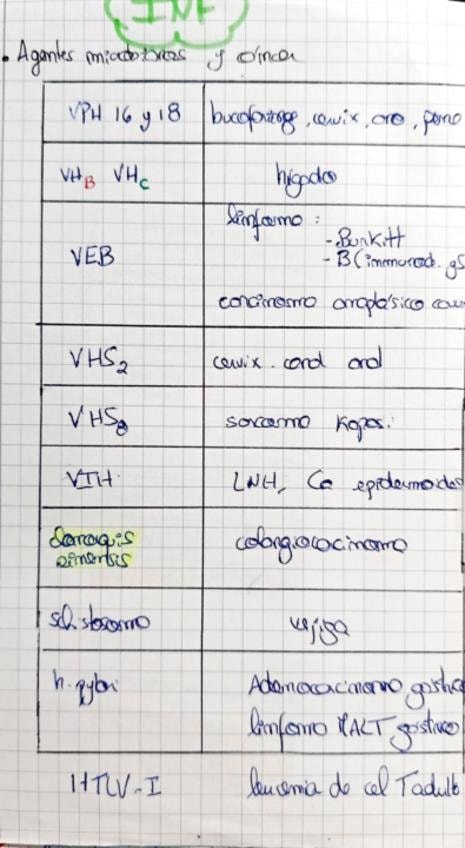 INF
. Agentes microbianos y cáncer
VPH 16 y 18 bucofaringe, cervix, ano, pene
VHB VHC hígado
VEB linfomo :
- Burkitt
- B (inmunod.
carcinoma anaplásico cav
VHS2 cervix
VHS8 sarcoma Kapos.
VIH LNH, Ca epidermoide
clonorquis
sinensis
colangiocarcinoma
schistosoma vejiga
h. pylori Adenocarcinoma gástrico
linfoma MALT gástrico
HTLV-I leucemia de cel T adulto